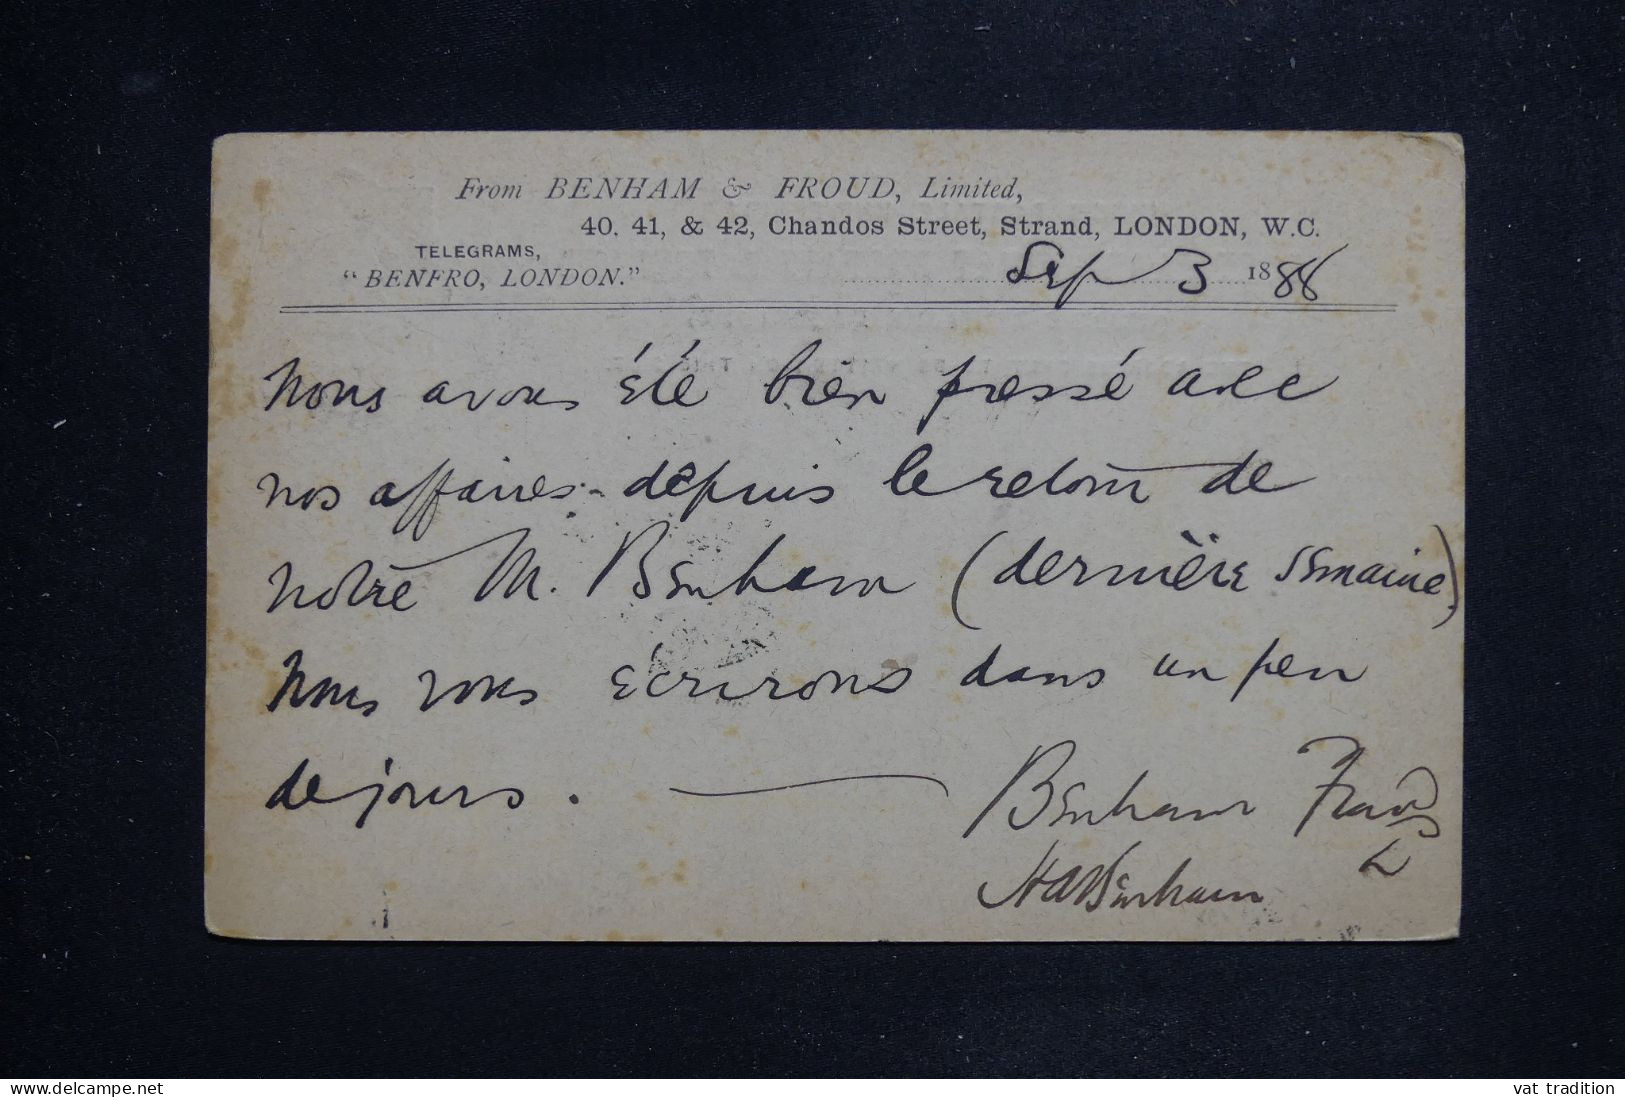 From BENHAM & FROUD, Limited,
40, 41, & 42, Chandos Street, Strand, LONDON, W.C.
TELEGRAMS,
"BENFRO, LONDON."
Sep 3 1888
Nous avons été bien pressé avec
nos affaires - depuis le retour de
notre M. Benham (dernière semaine)
Nous vous écrirons dans un peu
de jours.
Benham Froud
L
HABenham
www.delcampe.net
vat tradition